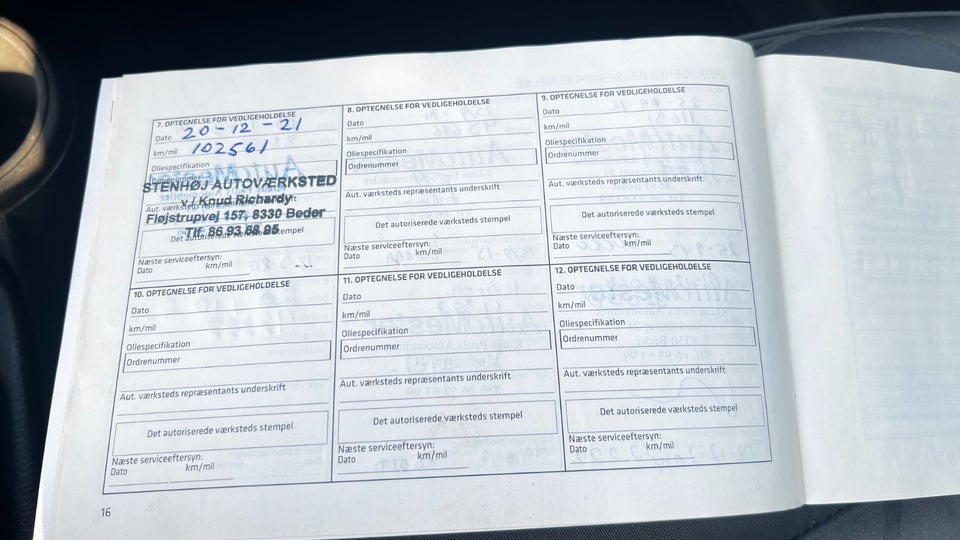 7. OPTEGNELSE FOR VEDLIGEHOLDELSE
Dato 20-12-21
km/mil 102561
Oliespecifikation
STENHØJ AUTOVÆRKSTED
v/ Knud Richardy
Fløjstrupvej 157, 8330 Beder
Tlf. 86 93 68 95
Det autoriserede værksteds stempel
Næste serviceeftersyn:
Dato km/mil
8. OPTEGNELSE FOR VEDLIGEHOLDELSE
Dato
km/mil
Oliespecifikation
Ordrenummer
Aut. værksteds repræsentants underskrift
Det autoriserede værksteds stempel
Næste serviceeftersyn:
Dato km/mil
9. OPTEGNELSE FOR VEDLIGEHOLDELSE
Dato
km/mil
Oliespecifikation
Ordrenummer
Aut. værksteds repræsentants underskrift
Det autoriserede værksteds stempel
Næste serviceeftersyn:
Dato km/mil
10. OPTEGNELSE FOR VEDLIGEHOLDELSE
Dato
km/mil
Oliespecifikation
Ordrenummer
Aut. værksteds repræsentants underskrift
Det autoriserede værksteds stempel
Næste serviceeftersyn:
Dato km/mil
11. OPTEGNELSE FOR VEDLIGEHOLDELSE
Dato
km/mil
Oliespecifikation
Ordrenummer
Aut. værksteds repræsentants underskrift
Det autoriserede værksteds stempel
Næste serviceeftersyn:
Dato km/mil
12. OPTEGNELSE FOR VEDLIGEHOLDELSE
Dato
km/mil
Oliespecifikation
Ordrenummer
Aut. værksteds repræsentants underskrift
Det autoriserede værksteds stempel
Næste serviceeftersyn:
Dato km/mil
16